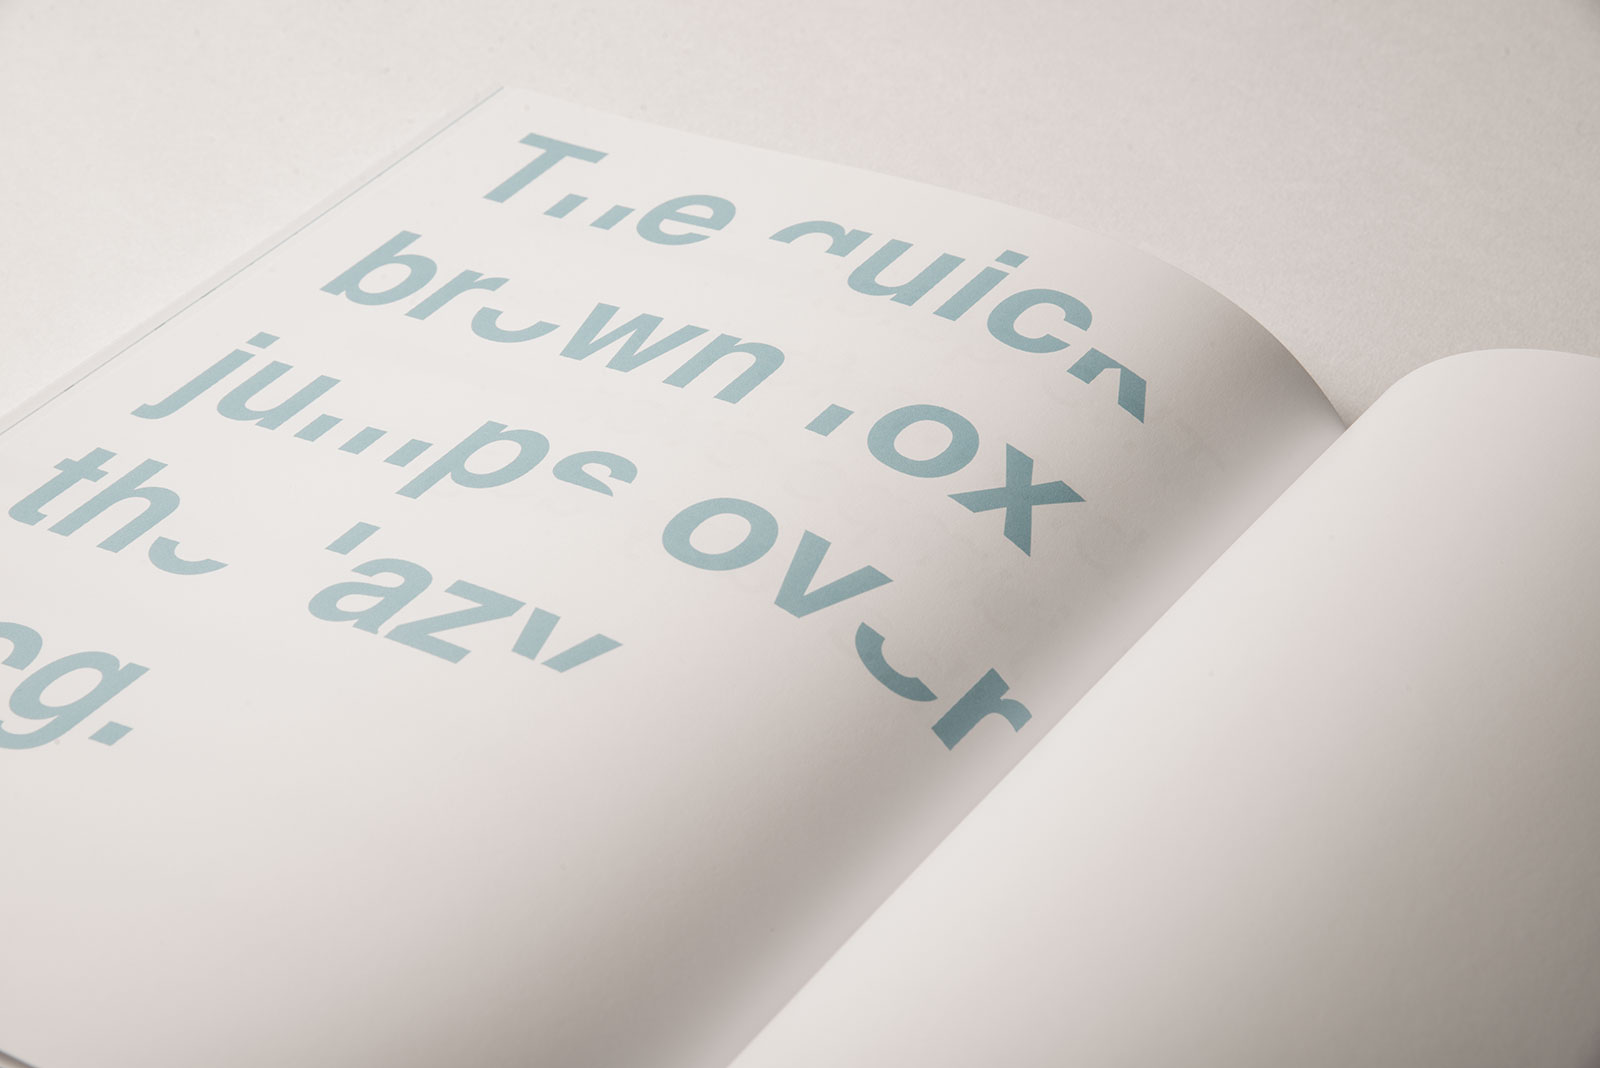 The quick
brown fox
jumps over
the lazy
og.